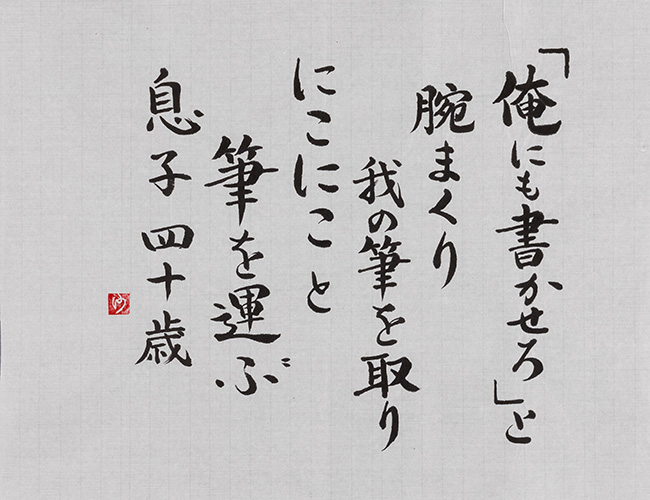 「俺にも書かせろ」と
腕まくり
我の筆を取り
にこにこと
筆を運ぶ
息子 四十歳